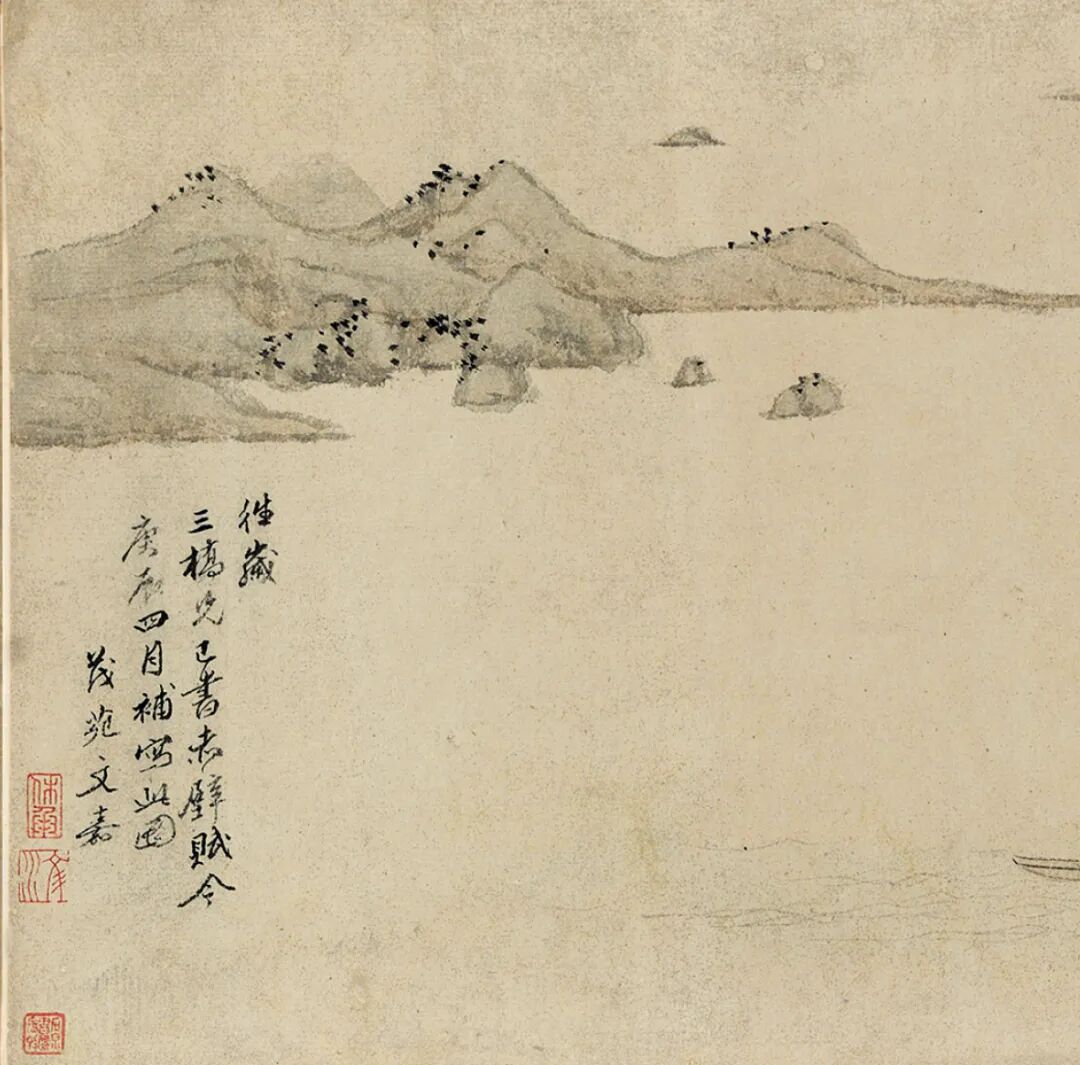 往歲
三橋兄已書赤壁賦今
庚辰四月補寫此圖
茂苑文嘉
休承